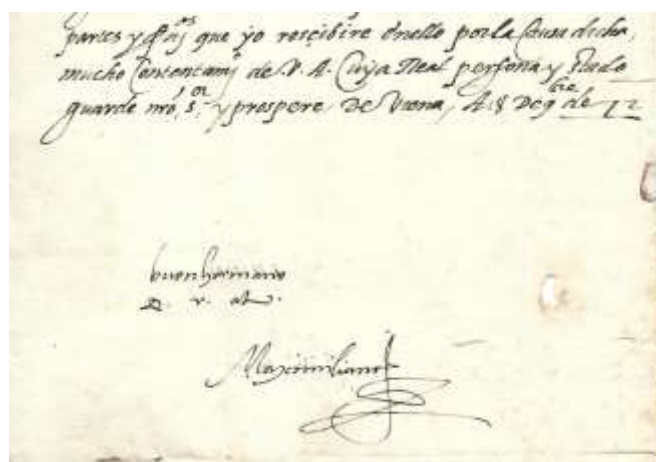 partes y que yo rescibire dello por la causa dicha,
mucho contentamj de V. A. Cuya Real persona y stado
guarde nro, s.or y prospere De Viena, A. 8 De 9bre de 72
buen hermano
D. v. al.
Maximiliano